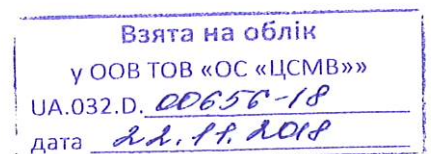 Взята на облік
у ООВ ТОВ «ОС «ЦСМВ»»
UA.032.D. 00656-18
дата 22.11.2018